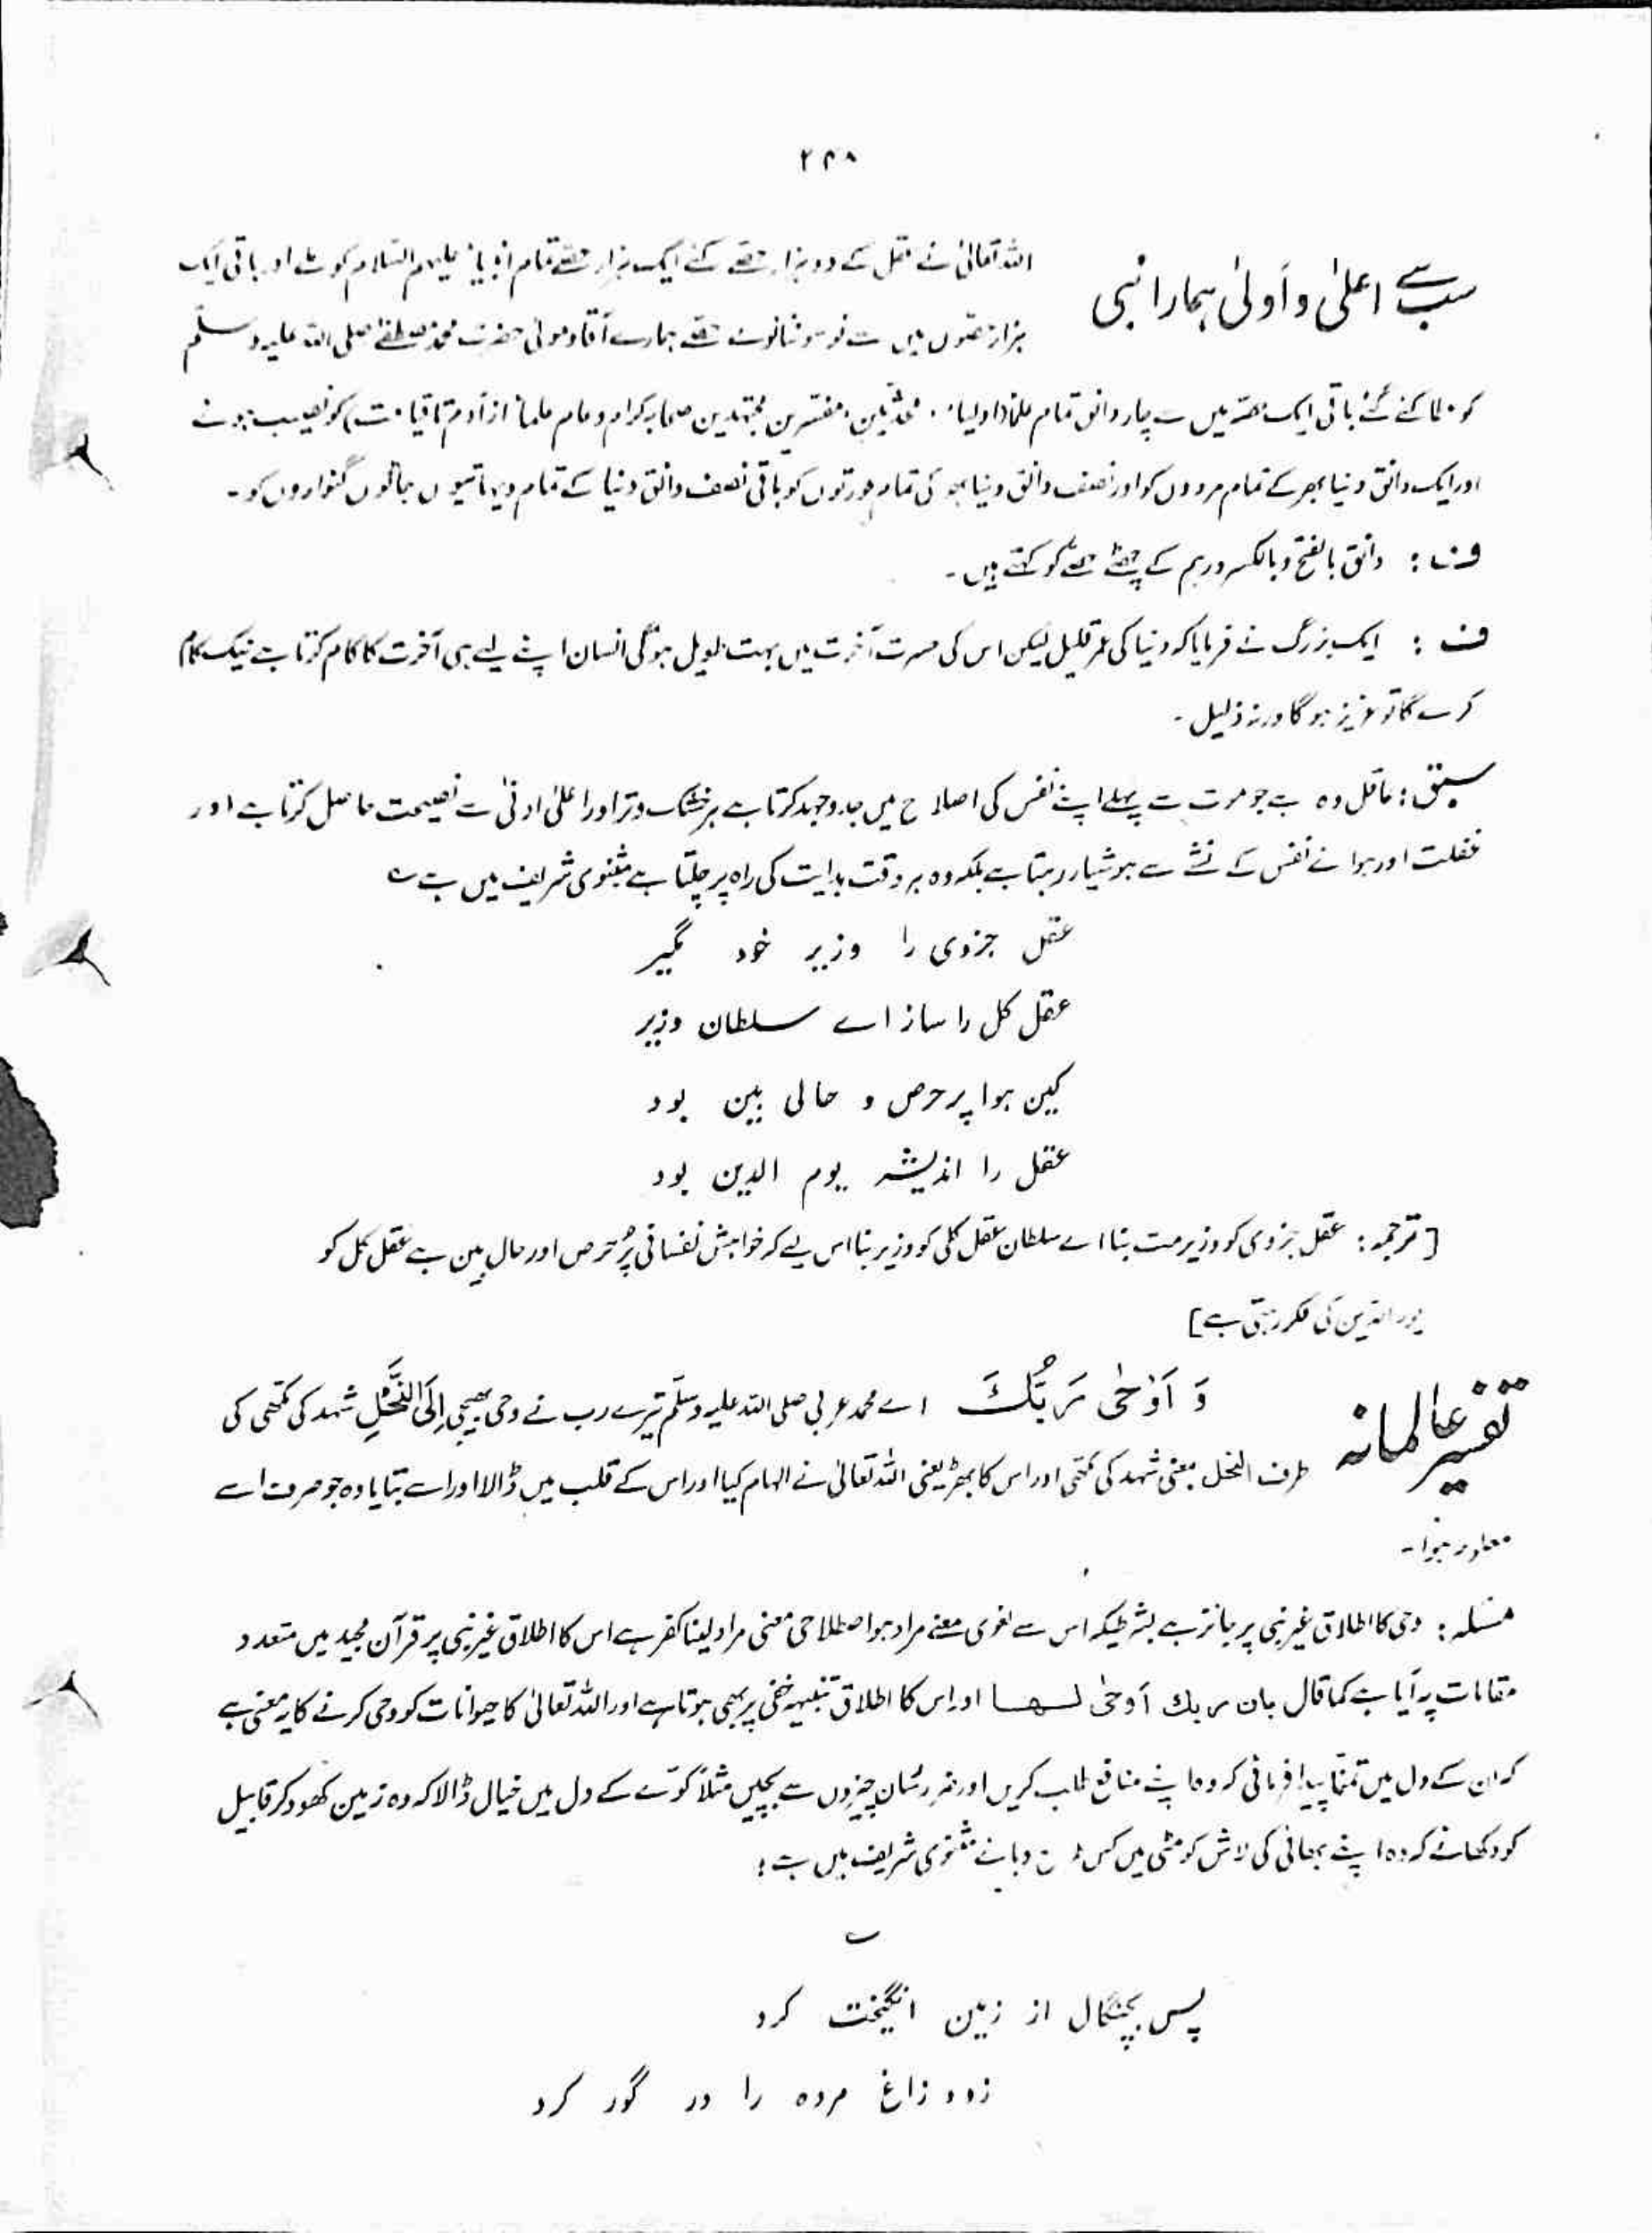 ۲۴۸
سب سے اعلیٰ و اَولیٰ ہمارا نبی
اللہ تعالیٰ نے عقل کے دو ہزار حصے کئے ایک ہزار حصے تمام انبیاء علیہم السلام کو ملے اور باقی ایک
ہزار حصوں میں سے نو سو ننانوے حصے ہمارے آقا و مولیٰ حضرت محمد مصطفےٰ صلی اللہ علیہ وسلّم
کو عطا کئے گئے باقی ایک حصّہ میں سے چار دانق تمام علماء (اولیاء، محدّثین، مفسّرین مجتہدین صحابہ کرام و عام علماء از آدم تا قیامت) کو نصیب ہوئے
اور ایک دانق دنیا بھر کے تمام مردوں کو اور نصف دانق دنیا بھر کی تمام عورتوں کو باقی نصف دانق دنیا کے تمام دیہاتیوں جاٹوں گنواروں کو۔
ف : دانق بالفتح و بالکسر درہم کے چھٹے حصّے کو کہتے ہیں۔
ف : ایک بزرگ نے فرمایا کہ دنیا کی عمر قلیل لیکن اس کی حسرت آخرت میں بہت طویل ہوگی انسان اپنے لیے ہی آخرت کا کام کرتا ہے نیک کام
کرے گا تو عزیز ہوگا ورنہ ذلیل۔
سبق : عاقل وہ ہے جو موت سے پہلے اپنے نفس کی اصلاح میں جدوجہد کرتا ہے ہر خشک و تر اور اعلیٰ ادنیٰ سے نصیحت حاصل کرتا ہے اور
غفلت اور ہوائے نفس کے نشے سے ہوشیار رہتا ہے بلکہ وہ ہر وقت ہدایت کی راہ پر چلتا ہے مثنوی شریف میں ہے ؎
عقل جزوی را وزیر خود مگیر
عقل کل را ساز اے سلطان وزیر
کین ہوا پر حرص و حالی بین بود
عقل را اندیشہ یوم الدین بود
[ترجمہ : عقل جزوی کو وزیر مت بنا اے سلطان عقل کلی کو وزیر بنا اس لیے کہ خواہش نفسانی پُر حرص اور حال بین ہے عقل کل کو
یوم الدین کی فکر رہتی ہے]
تفسیر عالمانہ
وَ اَوْحٰی رَبُّكَ اے محمد عربی صلی اللہ علیہ وسلّم تیرے رب نے وحی بھیجی اِلَی النَّحْلِ شہد کی مکھی کی
طرف النحل بمعنی شہد کی مکھی اور اس کا بھڑ یعنی اللہ تعالیٰ نے الہام کیا اور اس کے قلب میں ڈالا اور اسے بتایا وہ جو صرف اسے
معلوم ہوا۔
مسئلہ : وحی کا اطلاق غیر نبی پر جائز ہے بشرطیکہ اس سے لغوی معنے مراد ہو اصطلاحی معنی مراد لینا کفر ہے اس کا اطلاق غیر نبی پر قرآن مجید میں متعدد
مقامات پہ آیا ہے کما قال بان ربك اَوحٰی لھا اور اس کا اطلاق تنبیہہ خفی پر بھی ہوتا ہے اور اللہ تعالیٰ کا حیوانات کو وحی کرنے کا یہ معنی ہے
کہ ان کے دل میں تمنّا پیدا فرمائی کہ وہ اپنے منافع طلب کریں اور ضرر رساں چیزوں سے بچیں مثلاً کوّے کے دل میں خیال ڈالا کہ وہ زمین کھود کر قابیل
کو دکھائے کہ وہ اپنے بھائی کی لاش کو مٹی میں کس طرح دبائے مثنوی شریف میں ہے :
؎
پس بچنگال از زمین انگیخت کرد
زود زاغ مردہ را در گور کرد